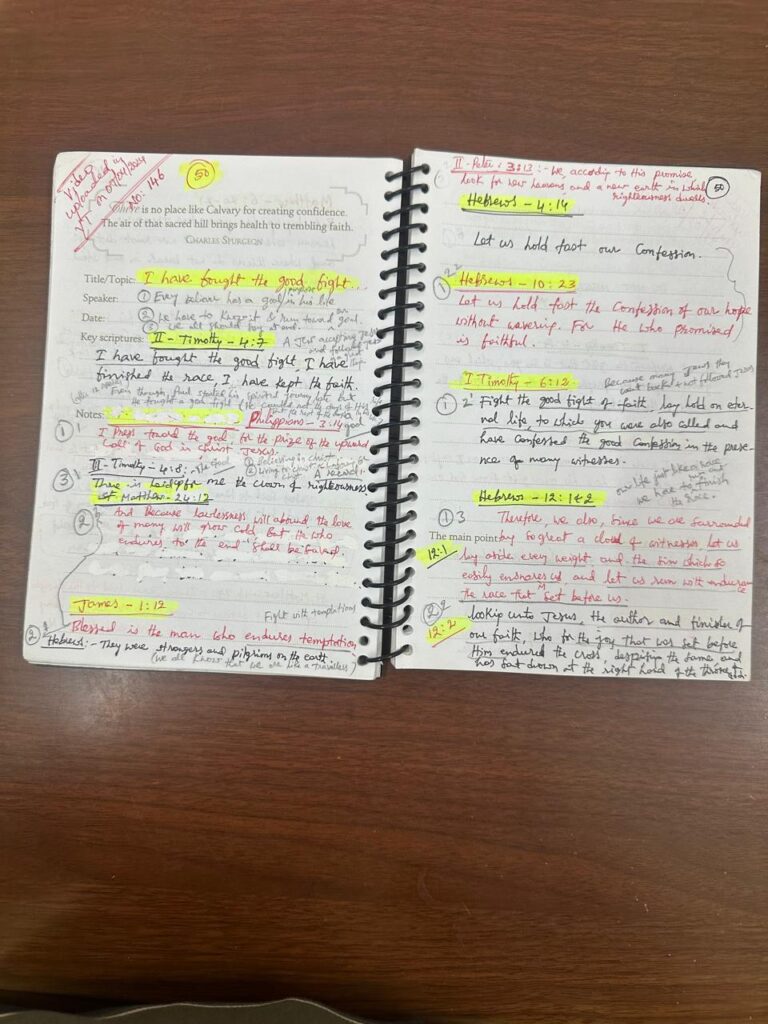 Video
uploaded in
YT on 07/04/2024
No: 146
50
There is no place like Calvary for creating confidence.
The air of that sacred hill brings health to trembling faith.
CHARLES SPURGEON
Title/Topic: I have fought the good fight...
Speaker: ① Every believer has a goal in his life
purpose
Date: ② We have to know it & run toward goal.
③ We all should pay attend.
Key scriptures: II - Timothy - 4:7
I have fought the good fight, I have
finished the race, I have kept the faith.
Notes: Philippians - 3:14
① I Press toward the goal for the prize of the upward
Call of God in Christ Jesus.
③ II - Timothy - 4:8:
There is laid up for me the crown of righteousness
St. Matthew - 24:12
② And Because lawlessness will abound, the love
of many will grow cold. But He who
endures to the end shall be saved.
James - 1:12
Fight with temptations
Blessed is the man who endures temptation
② Hebrews:- They were strangers and pilgrims on the earth
(we all know that we are like a travellers)
II - Peter: 3:13:- We, according to His promise
look for new heavens and a new earth in which
righteousness dwells.
50
Hebrews - 4:14
Let us hold fast our Confession.
① Hebrews - 10:23
Let us hold fast the Confession of our hope
without wavering. For He who promised
is faithful.
I Timothy - 6:12
Because many Jews they
went back & not followed Jesus
① 2 Fight the good fight of faith, lay hold on eter-
nal life, to which you were also called and
have confessed the good Confession in the prese-
nce of many witnesses.
our life just like a race
we have to finish
the race.
Hebrews - 12:1&2
① 3 Therefore, we also, since we are surrounded
The main point: by so great a cloud of witnesses, let us
12:1 lay aside every weight, and the sin which so
easily ensnares us, and let us run with endurance
the race that set before us.
② 12:2 looking unto Jesus, the author and finisher of
our faith, who for the joy that was set before
Him endured the cross, despising the shame and
has sat down at the right hand of the throne of